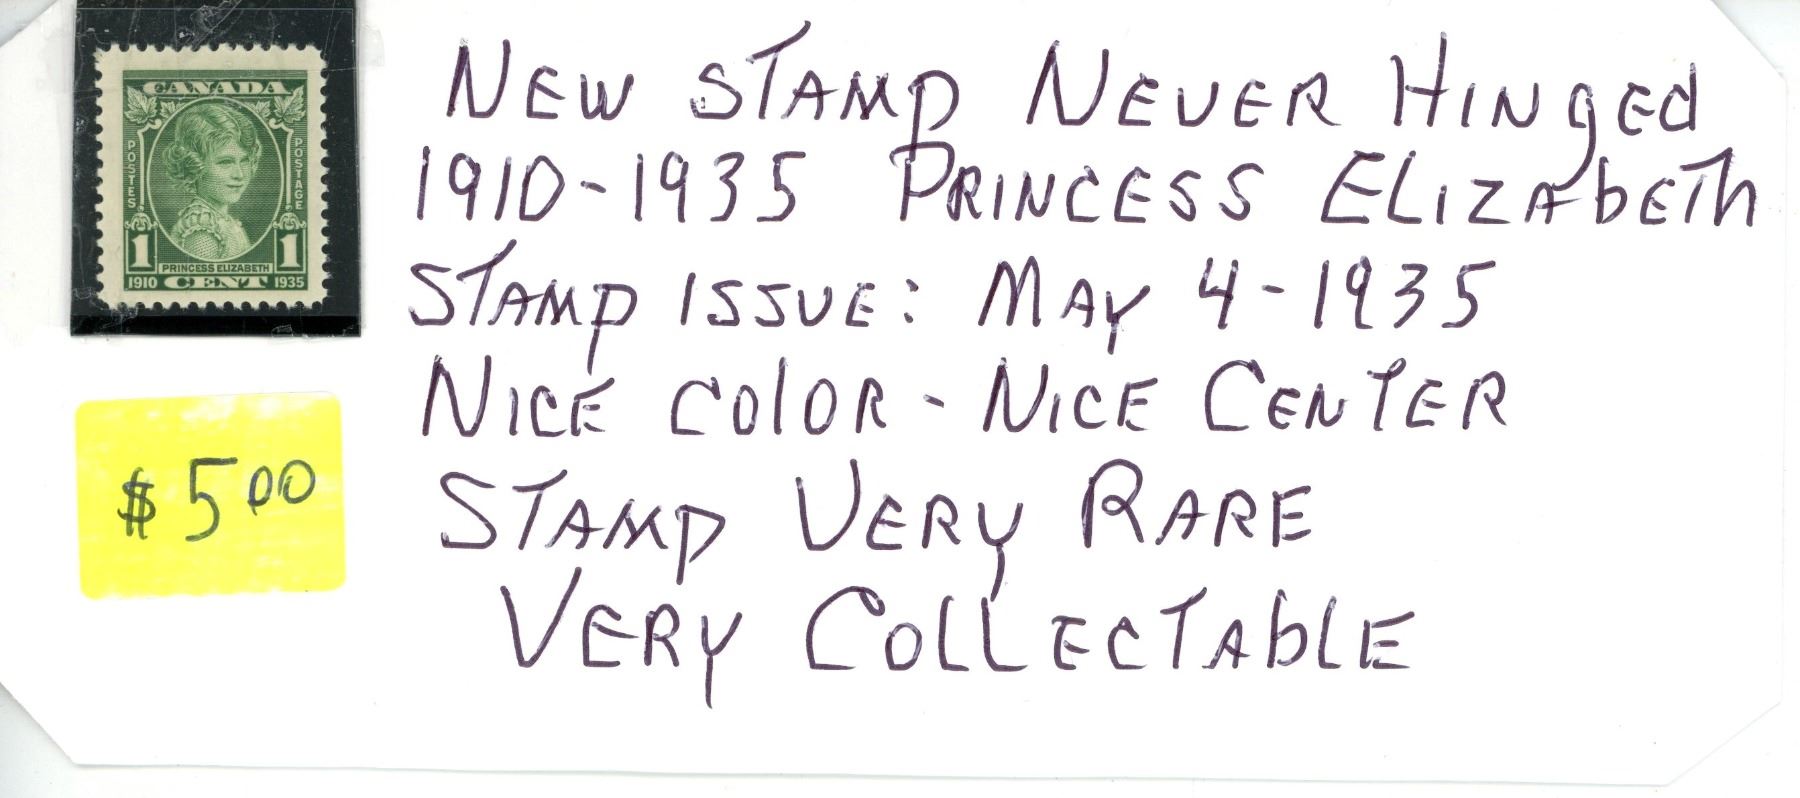 CANADA
POSTES
POSTAGE
1 1
PRINCESS ELIZABETH
1910 CENT 1935
$5.00
NEW STAMP NEVER HINgEd
1910-1935 PRINCESS ELIZAbETh
STAMP ISSUE: MAY 4-1935
NICE COlOR - NICE CENTER
STAMP VERY RARE
VERY COllECTAblE